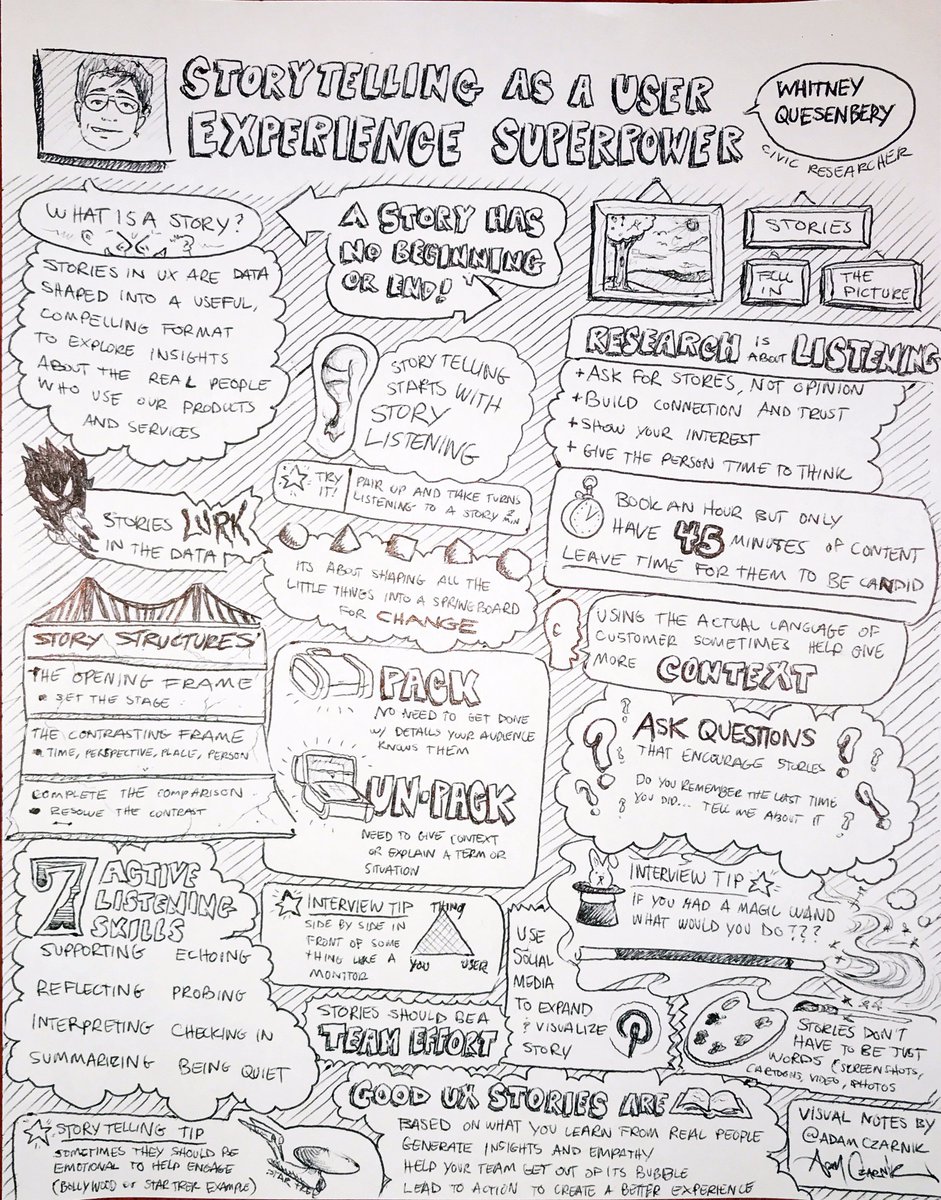 STORYTELLING AS A USER
EXPERIENCE SUPERPOWER
WHITNEY
QUESENBERY
CIVIC RESEARCHER
WHAT IS A STORY?
STORIES IN UX ARE DATA
SHAPED INTO A USEFUL,
COMPELLING FORMAT
TO EXPLORE INSIGHTS
ABOUT THE REAL PEOPLE
WHO USE OUR PRODUCTS
AND SERVICES
A STORY HAS
NO BEGINNING
OR END!
STORIES
FILL
IN
THE
PICTURE
STORY TELLING
STARTS WITH
STORY
LISTENING
TRY
IT!
PAIR UP AND TAKE TURNS
LISTENING TO A STORY 2
MIN
RESEARCH IS ABOUT LISTENING
+ ASK FOR STORES, NOT OPINION
+ BUILD CONNECTION AND TRUST
+ SHOW YOUR INTEREST
+ GIVE THE PERSON TIME TO THINK
STORIES LURK
IN THE DATA
BOOK AN HOUR BUT ONLY
HAVE 45 MINUTES OF CONTENT
LEAVE TIME FOR THEM TO BE CANDID
ITS ABOUT SHAPING ALL THE
LITTLE THINGS INTO A SPRINGBOARD
FOR CHANGE
STORY STRUCTURES
THE OPENING FRAME
• SET THE STAGE
THE CONTRASTING FRAME
• TIME, PERSPECTIVE, PLACE, PERSON
COMPLETE THE COMPARISON
• RESOLVE THE CONTRAST
PACK
NO NEED TO GET DONE
W/ DETAILS YOUR AUDIENCE
KNOWS THEM
UN-PACK
NEED TO GIVE CONTEXT
OR EXPLAIN A TERM OR
SITUATION
USING THE ACTUAL LANGUAGE OF
CUSTOMER SOMETIMES HELP GIVE
MORE CONTEXT
ASK QUESTIONS
THAT ENCOURAGE STORIES
DO YOU REMEMBER THE LAST TIME
YOU DID... TELL ME ABOUT IT
7 ACTIVE
LISTENING
SKILLS
SUPPORTING ECHOING
REFLECTING PROBING
INTERPRETING CHECKING IN
SUMMARIZING BEING QUIET
INTERVIEW TIP
SIDE BY SIDE IN
FRONT OF SOME
THING LIKE A
MONITOR
THING
YOU USER
INTERVIEW TIP
IF YOU HAD A MAGIC WAND
WHAT WOULD YOU DO???
USE
SOCIAL
MEDIA
TO EXPAND
& VISUALIZE
STORY
STORIES SHOULD BE A
TEAM EFFORT
STORIES DON'T
HAVE TO BE JUST
WORDS (SCREENSHOTS,
CARTOONS, VIDEO, PHOTOS
STORY TELLING TIP
SOMETIMES THEY SHOULD BE
EMOTIONAL TO HELP ENGAGE
(BOLLYWOOD OF STAR TREK EXAMPLE)
STAR TREK
GOOD UX STORIES ARE
BASED ON WHAT YOU LEARN FROM REAL PEOPLE
GENERATE INSIGHTS AND EMPATHY
HELP YOUR TEAM GET OUT OF ITS BUBBLE
LEAD TO ACTION TO CREATE A BETTER EXPERIENCE
VISUAL NOTES BY
@ADAMCZARNIK
ADAM CZARNIK